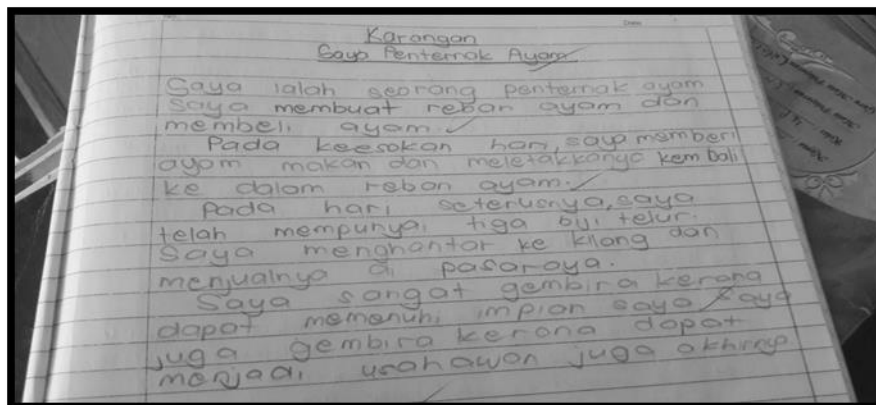 Karangan
Saya Penternak Ayam
Saya ialah seorang penternak ayam
saya membuat reban ayam dan
membeli ayam.
Pada keesokan hari, saya memberi
ayam makan dan meletakkanya kembali
ke dalam reban ayam.
Pada hari seterusnya, saya
telah mempunyai tiga biji telur.
Saya menghantar ke kilang dan
menjualnya di pasaraya.
Saya sangat gembira kerana
dapat memenuhi impian saya. Saya
juga gembira kerana dapat
menjadi usahawan juga akhirnya.